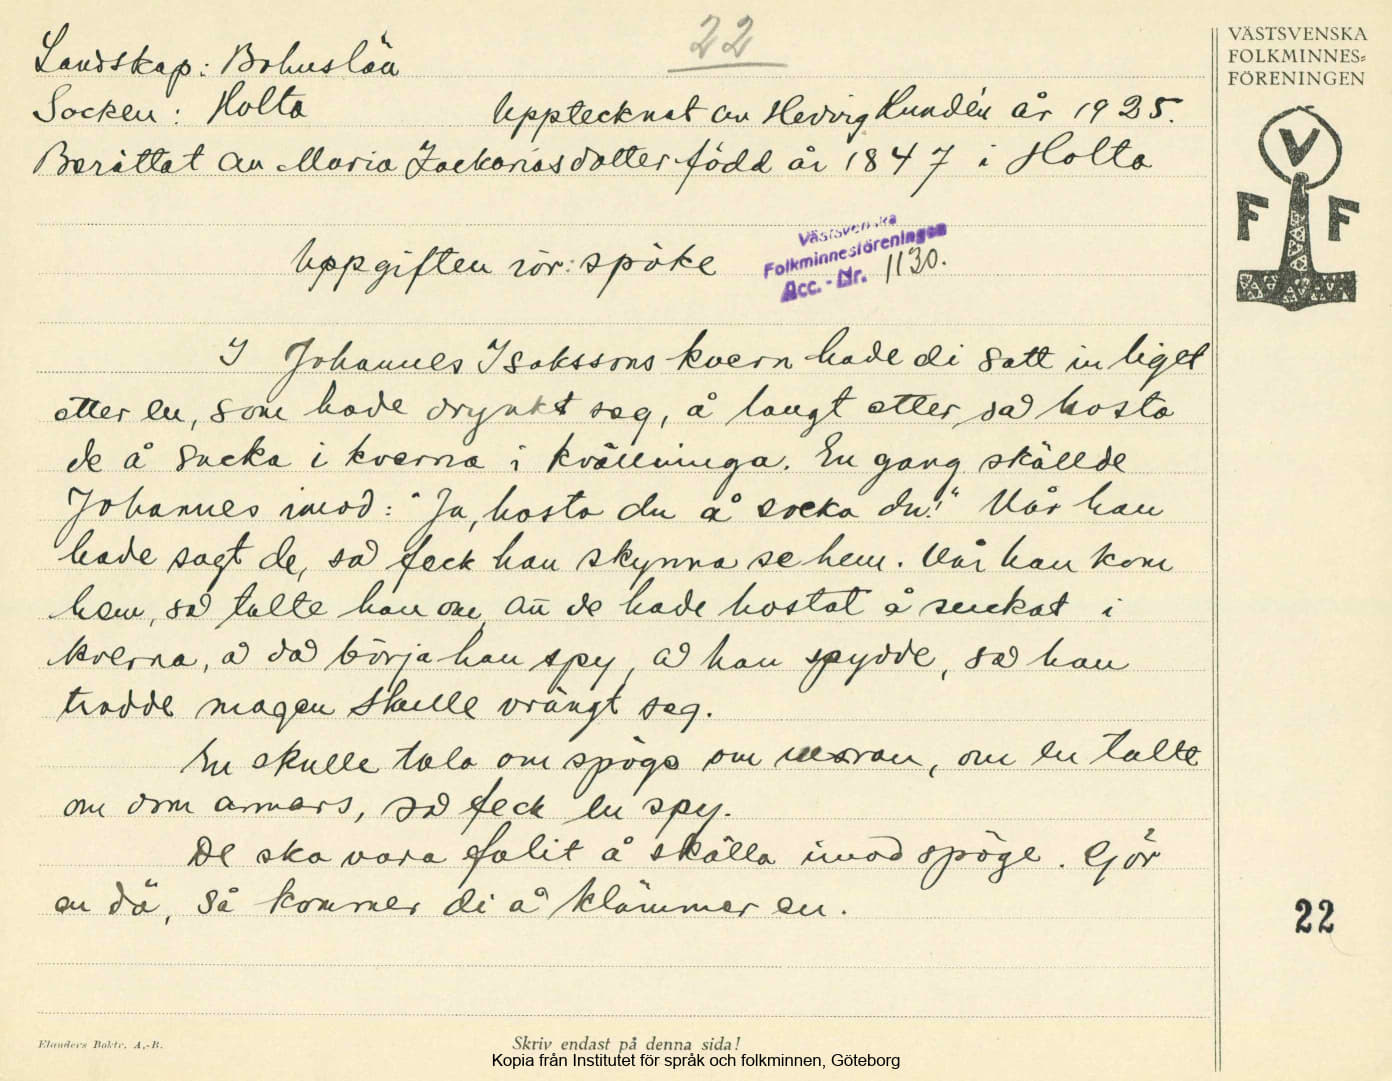 22
VÄSTSVENSKA
FOLKMINNES-
FÖRENINGEN
Landskap: Bohuslän
Socken: Holta Upptecknat av Hedvig Lundén år 1925.
Berättat av Maria Zackariasdotter född år 1847 i Holta
V
F F
Uppgiften rör: spöke
Västsvenska
Folkminnesföreningen
Acc.-Nr. 1130.
I Johannes Isakssons kvern hade di satt in liget
etter en, som hade drynkt seg, å langt etter så hosta
de å sucka i kverna i kvällninga. En gang skällde
Johannes imod: "Ja, hosta du å socka du!" När han
hade sagt de, så feck han skynna se hem. När han kom
hem, så talte han om, att de hade hostat å suckat i
kverna, å då börja han spy, å han spydde, så han
trodde magen skulle vrängt seg.
En skulle tala om spögs om , om en talte
om dom annars, så feck en spy.
De ska vara falit å skälla imod spöge. Gör
en dä, så kommer di å klämmer en.
22
Elanders Boktr. A.-B.
Skriv endast på denna sida!
Kopia från Institutet för språk och folkminnen, Göteborg